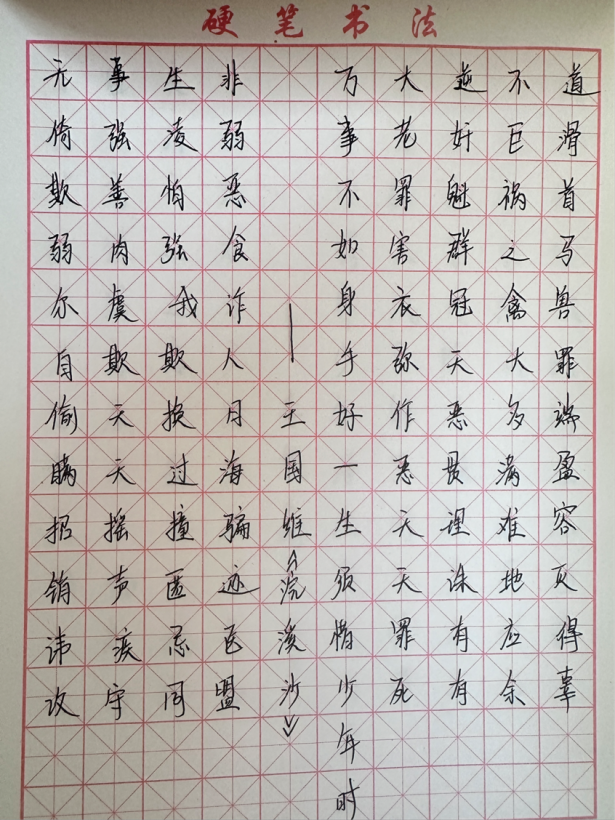 硬笔书法
无事生非
倚强凌弱
欺善怕恶
弱肉强食
尔虞我诈
自欺欺人
偷天换日
瞒天过海
招摇撞骗
销声匿迹
讳疾忌医
攻守同盟
万事不如身手好一生须惜少年时
—王国维《浣溪沙》
大逆不道
老奸巨滑
罪魁祸首
害群之马
衣冠禽兽
弥天大罪
作恶多端
恶贯满盈
天理难容
天诛地灭
罪有应得
死有余辜